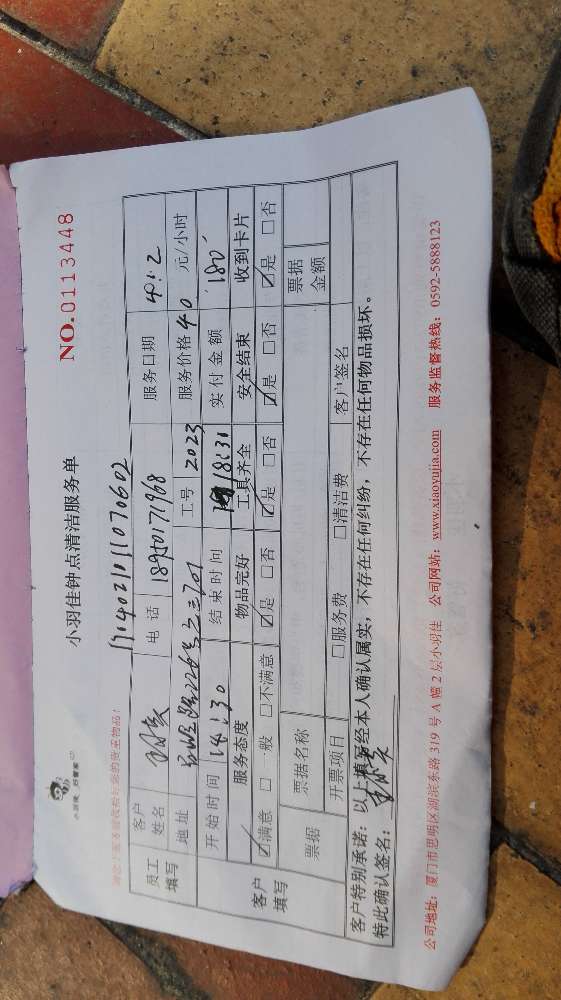 小羽佳 好管家
小羽佳钟点清洁服务单
NO.0113448
请您于服务前收拾好您的贵重物品！
1704021011070602
员工填写
客户姓名
电话 18950171968
服务日期 4.2
地址
工号 2023
服务价格 40 元/小时
开始时间 14:30
结束时间 18:30
实付金额 180
客户填写
服务态度 物品完好 工具齐全 安全结束 收到卡片
☑满意 □一般 □不满意 ☑是 □否 ☑是 □否 ☑是 □否 ☑是 □否
票据 票据名称 票据金额
开票项目 □服务费 □清洁费 客户签名
客户特别承诺：以上填写经本人确认属实，不存在任何纠纷，不存在任何物品损坏。
特此确认签名：
公司地址：厦门市思明区湖滨东路 319 号 A 幢 2 层小羽佳 公司网站：www.xiaoyujia.com 服务监督热线：0592-5888123